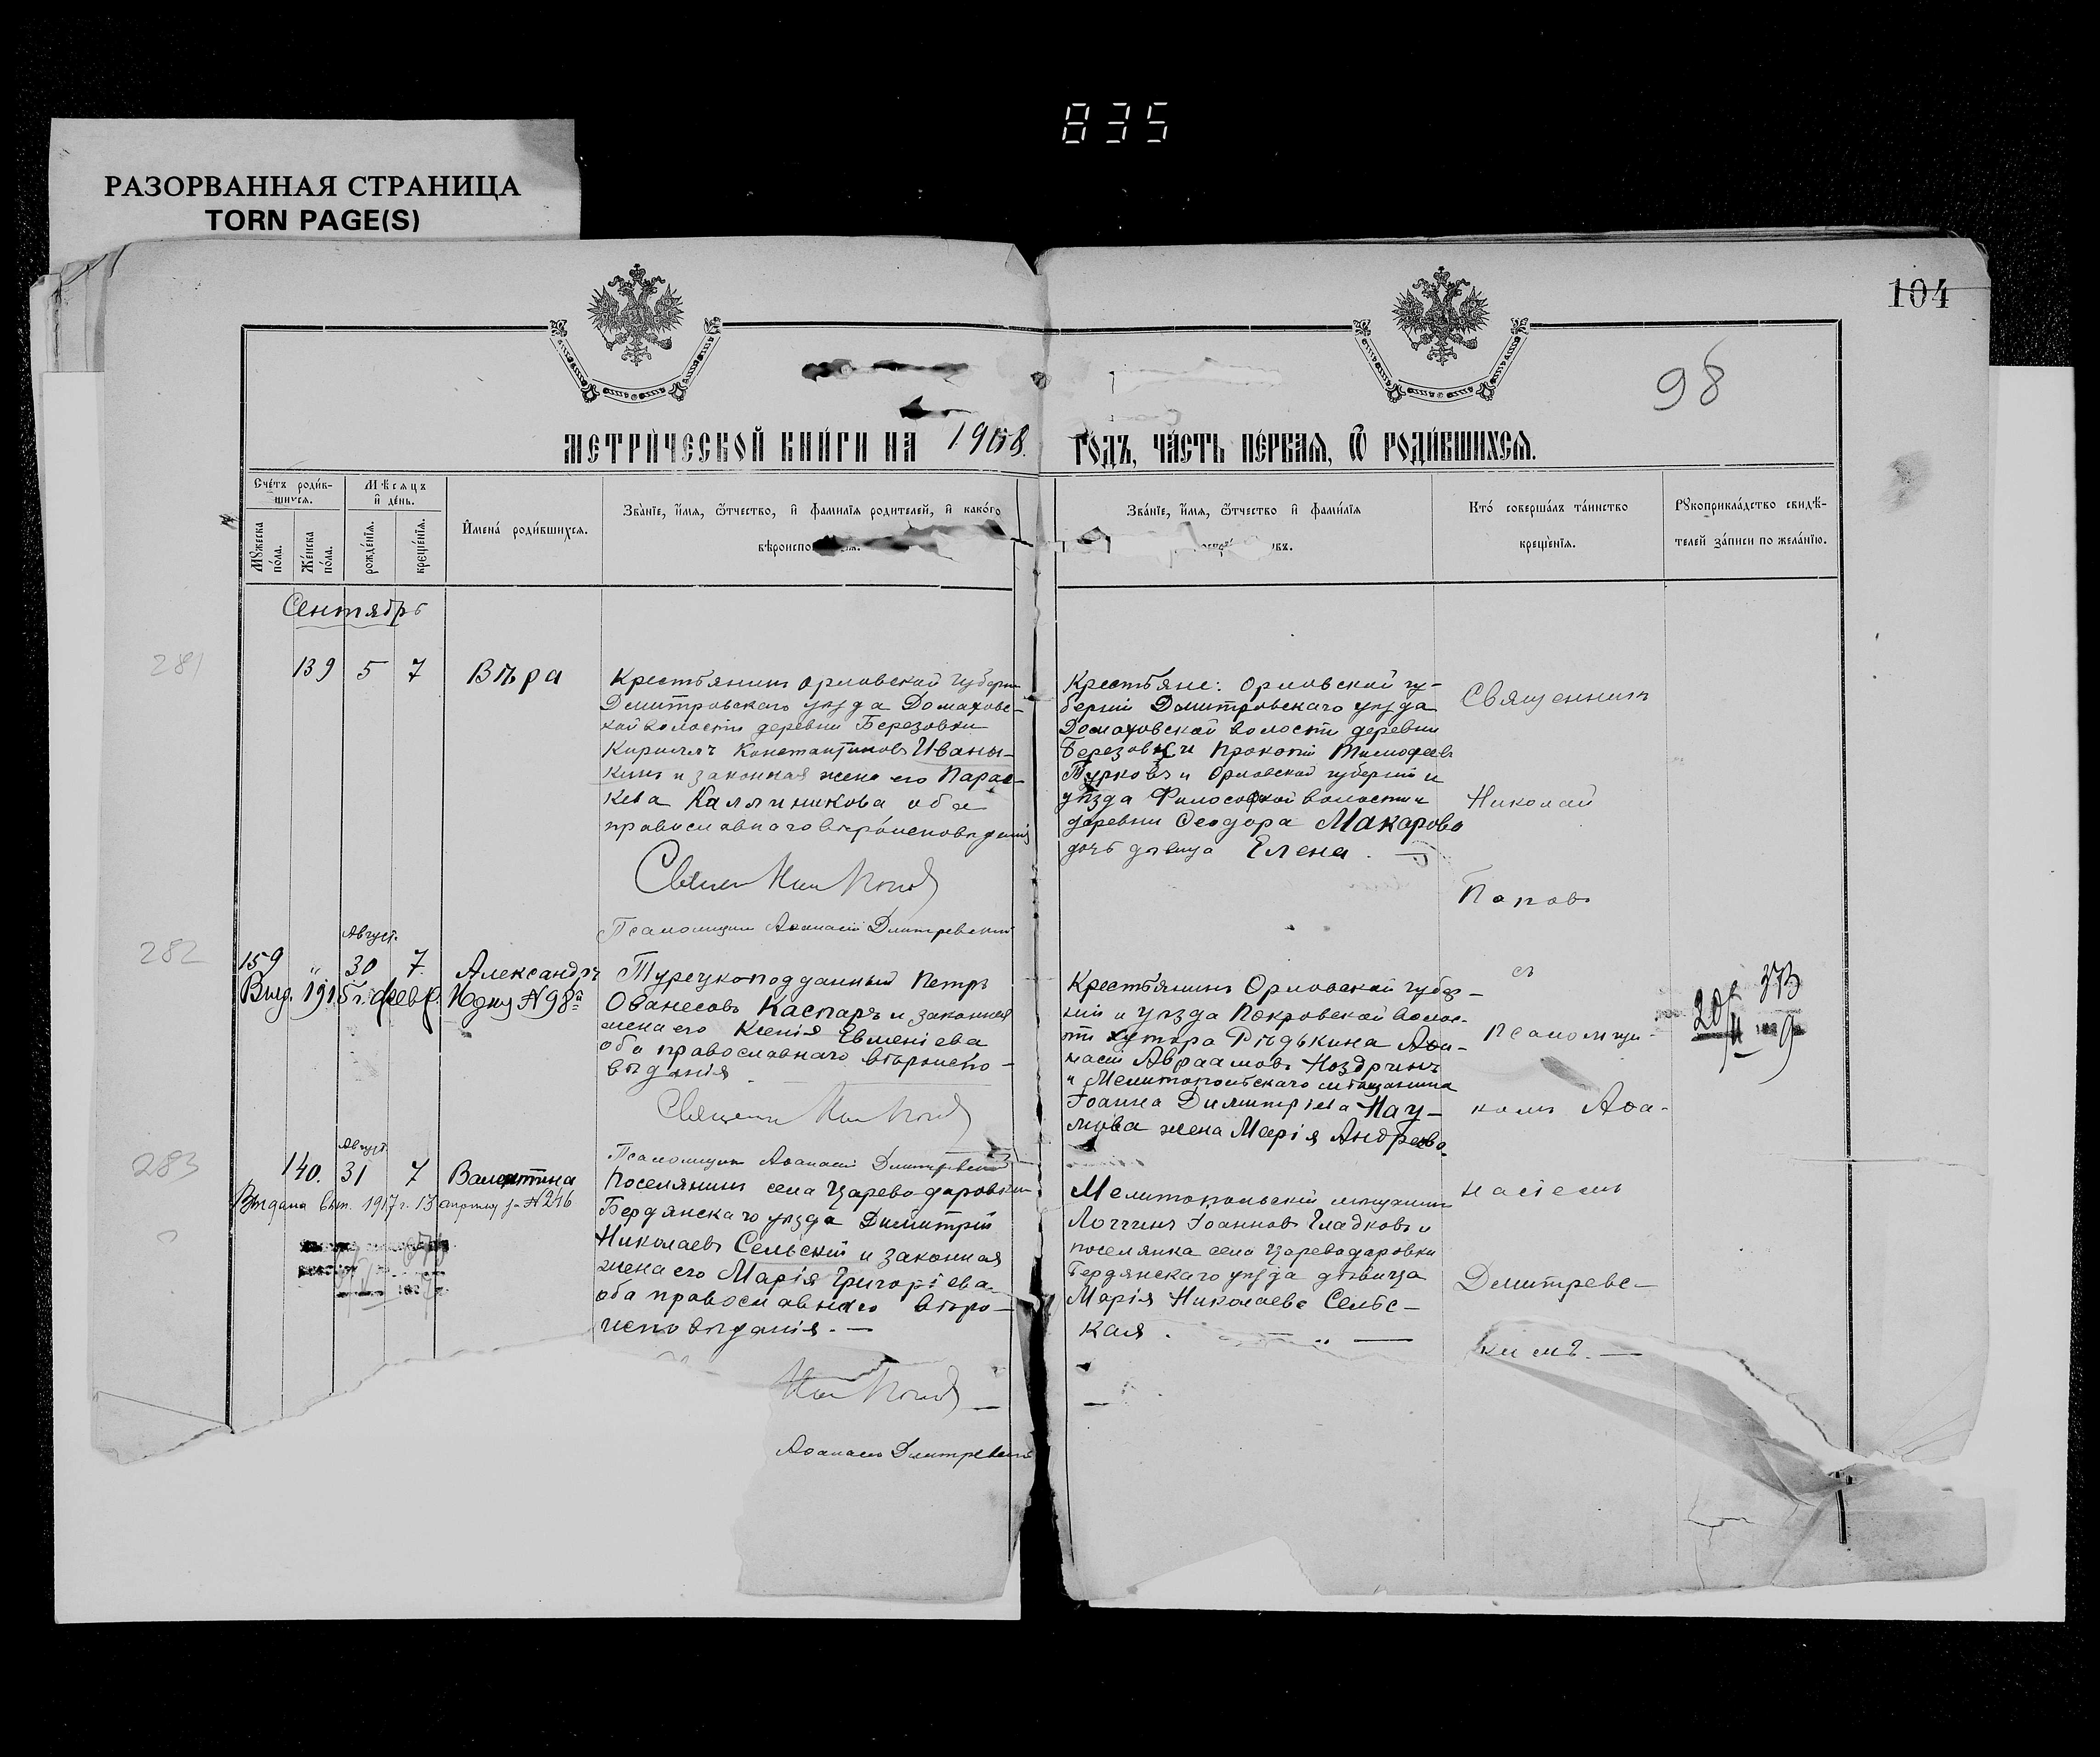 835
РАЗОРВАННАЯ СТРАНИЦА
TORN PAGE(S)
104
98
МЕТРИ́ЧЕСКОЙ КНИ́ГИ НА 1908 ГОДЪ, ЧА́СТЬ ПЕ́РВАѦ, Ѿ РОДИ́ВШИХСѦ.
Сче́тъ роди́в-
шихсѧ.
Мѣ́сѧцъ
и҆ де́нь.
Мꙋ́жеска
по́ла.
Же́нска
по́ла.
рожде́нїѧ.
креще́нїѧ.
И҆мена̀ роди́вшихсѧ.
Зва́нїе, и҆́мѧ, ѻ҆́тчество, и҆ фами́лїѧ роди́телей, и҆ како́гѡ
вѣроиспо
Зва́нїе, и҆́мѧ, ѻ҆́тчество и҆ фами́лїѧ
Кто̀ соверша́лъ та́инство
креще́нїѧ.
Рꙋкоприкла́дство свидѣ́-
телей за́писи по жела́нїю.
Сентябрь
281
139 5 7 Вѣра
Крестьянинъ Орловской губерн
Дмитровскаго уѣзда Домаховс-
кой волости деревни Березовки
Кириллъ Константиновъ Иваны-
кинъ и законная жена его Парас-
кева Каллиникова оба
православнаго вѣроисповѣданія
Священ Ник Попов
Псаломщикъ Аѳанасій Дмитревскій
Крестьяне: Орловской гу-
берніи Дмитровскаго уѣзда
Домаховской волости деревни
Березовки Прокопій Тимофеевъ
Турковъ и Орловской губерніи и
уѣзда Философской волости
деревни Ѳеодора Макарова
дочь дѣвица Елена.
Священникъ
Николай
Поповъ
282
Август.
159 " 30 7. Александръ
Выд. 1915 г. февр. 10 дня № 98
Турецкоподданный Петръ
Ованесовъ Каспаръ и законная
жена его Ксенія Евменіева
оба православнаго вѣроиспо-
вѣданія
Священ Ник Попов
Псаломщикъ Аѳанасій Дмитревскій
Крестьянинъ Орловской губер-
ніи и уѣзда Покровской волос-
ти хутора Рѣдькина Аѳа-
насій Авраамовъ Ноздринъ
и Мелитопольскаго мѣщанина
Іоанна Димитріева Нау-
мова жена Марія Андреева.
съ
псаломщи-
комъ Аѳа-
283
Август
140. 31 7 Валентина
Выдана вып. 1917 г. 13 апреля за № 246
Поселянинъ села Цареводаровки
Бердянскаго уѣзда Димитрій
Николаевъ Сельскій и законная
жена его Марія Григоріева
оба православнаго вѣро-
исповѣданія. —
Ник Попов
Аѳанасій Дмитревскій
Мелитопольскій мѣщанинъ
Логгинъ Іоанновъ Гладковъ и
поселянка села Цареводаровки
Бердянскаго уѣзда дѣвица
Марія Николаева Сельс-
кая.
насіемъ
Дмитревс-
кимъ. —